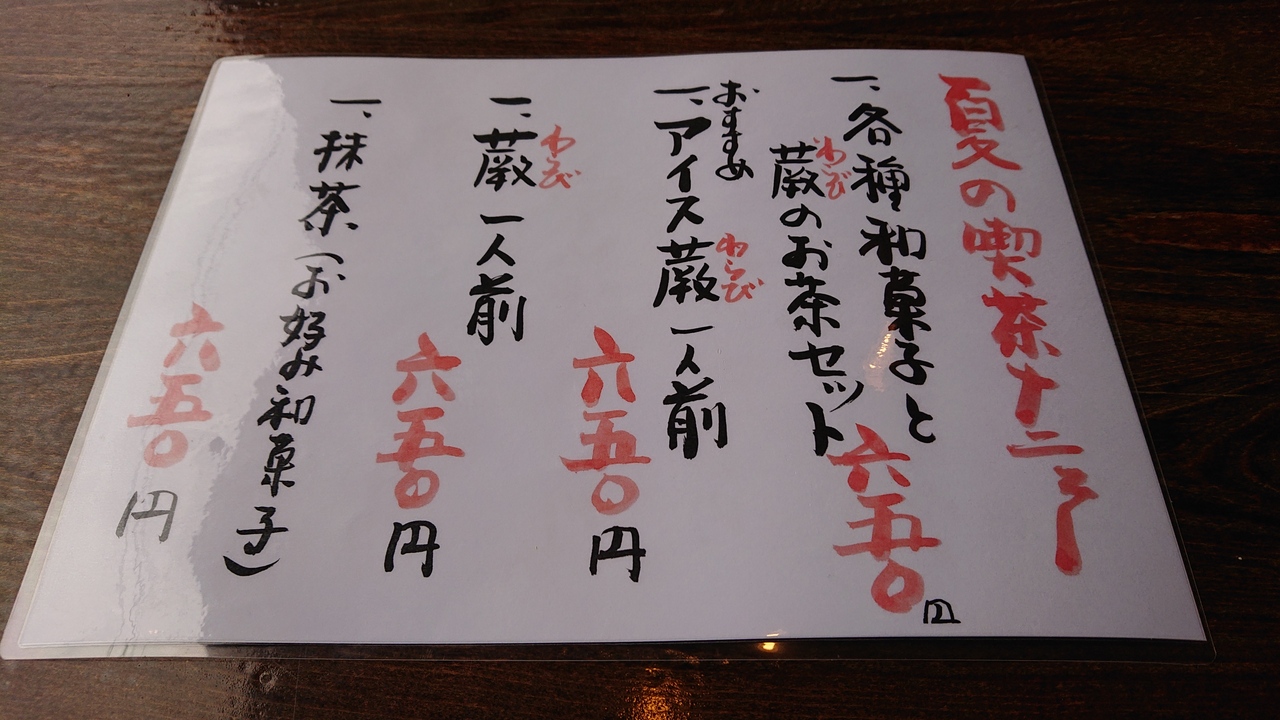 夏の喫茶メニュー
一、各種和菓子と
蕨のお茶セット
わらび
六五〇円
おすすめ
一、アイス蕨一人前
わらび
六五〇円
一、蕨一人前
わらび
六五〇円
一、抹茶(お好み和菓子)
六五〇円